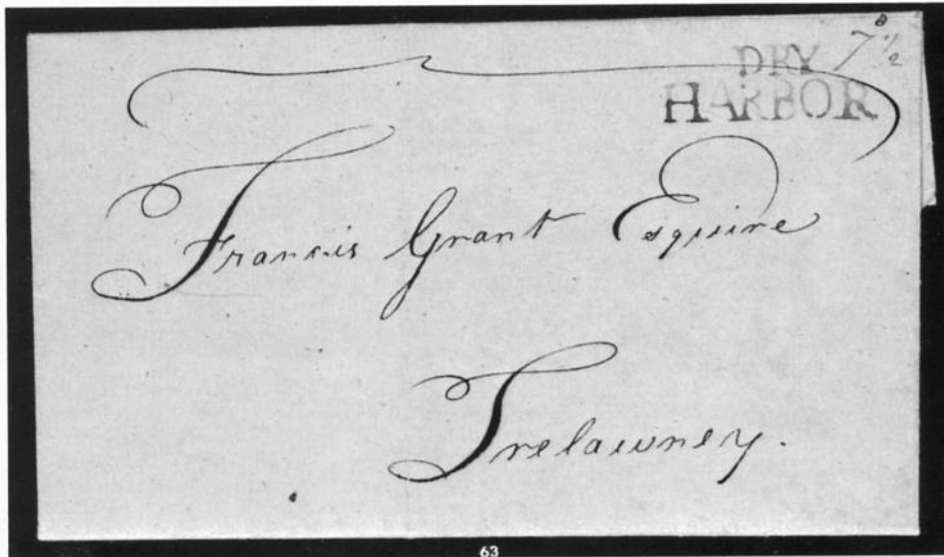 7½
DRY
HARBOR
Francis Grant Esquire
Trelawney.
63